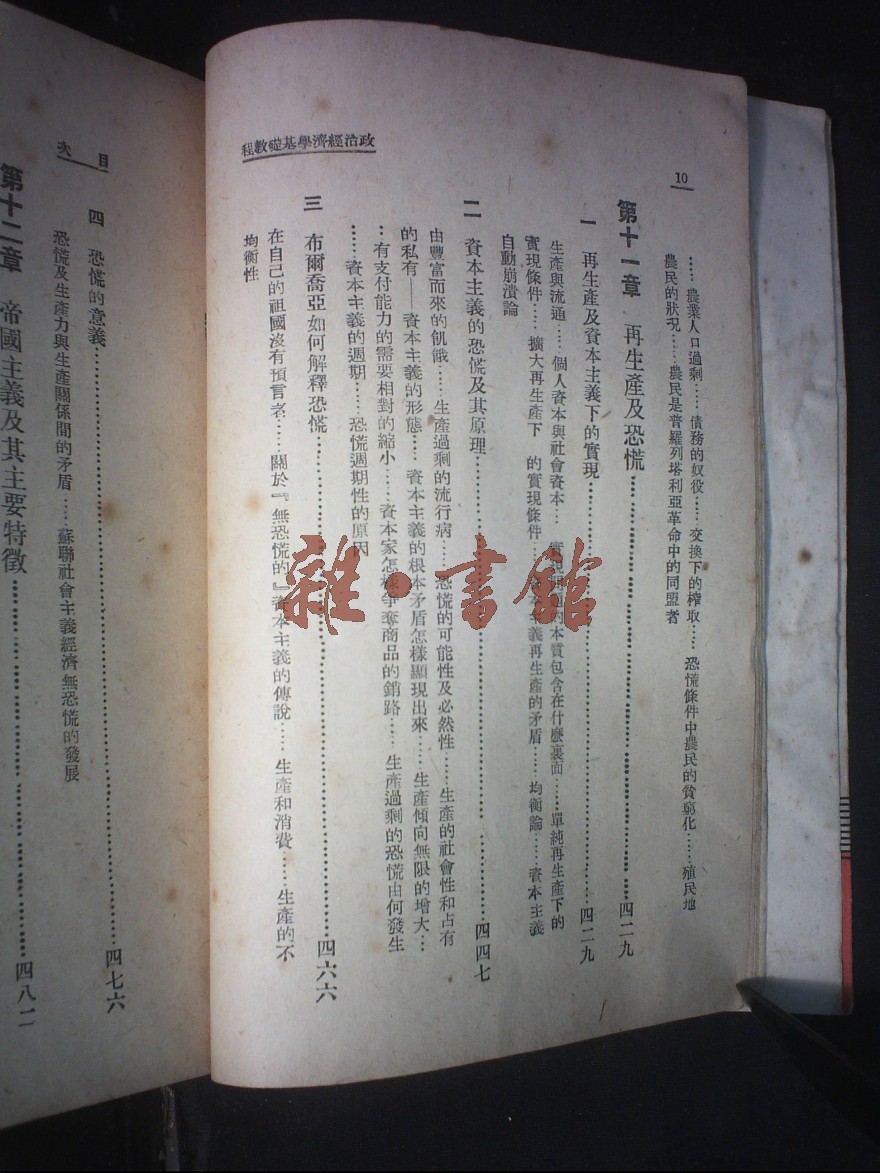 10
政治經濟學基礎教程
……農業人口過剩……債務的奴役……交換下的榨取……恐慌條件中農民的貧窮化……殖民地
農民的狀況……農民是普羅列塔利亞革命中的同盟者
第十一章 再生產及恐慌……四二九
一 再生產及資本主義下的實現……四二九
生產與流通……個人資本與社會資本……實現 的本質包含在什麼裏面……單純再生產下的
實現條件……擴大再生產下 的實現條件……資本主義再生產的矛盾……均衡論……資本主義
自動崩潰論
二 資本主義的恐慌及其原理……四四七
由豐富而來的飢餓……生產過剩的流行病……恐慌的可能性及必然性……生產的社會性和占有
的私有——資本主義的形態……資本主義的根本矛盾怎樣顯現出來……生產傾向無限的增大…
…有支付能力的需要相對的縮小……資本家怎樣爭奪商品的銷路……生產過剩的恐慌由何發生
……資本主義的週期……恐慌週期性的原因
三 布爾喬亞如何解釋恐慌……四六六
在自己的祖國沒有預言者……關於『無恐慌的』資本主義的傳說……生產和消費……生產的不
均衡性
目次
四 恐慌的意義……四七六
恐慌及生產力與生產關係間的矛盾……蘇聯社會主義經濟無恐慌的發展
第十二章 帝國主義及其主要特徵……四八二
雜·書館